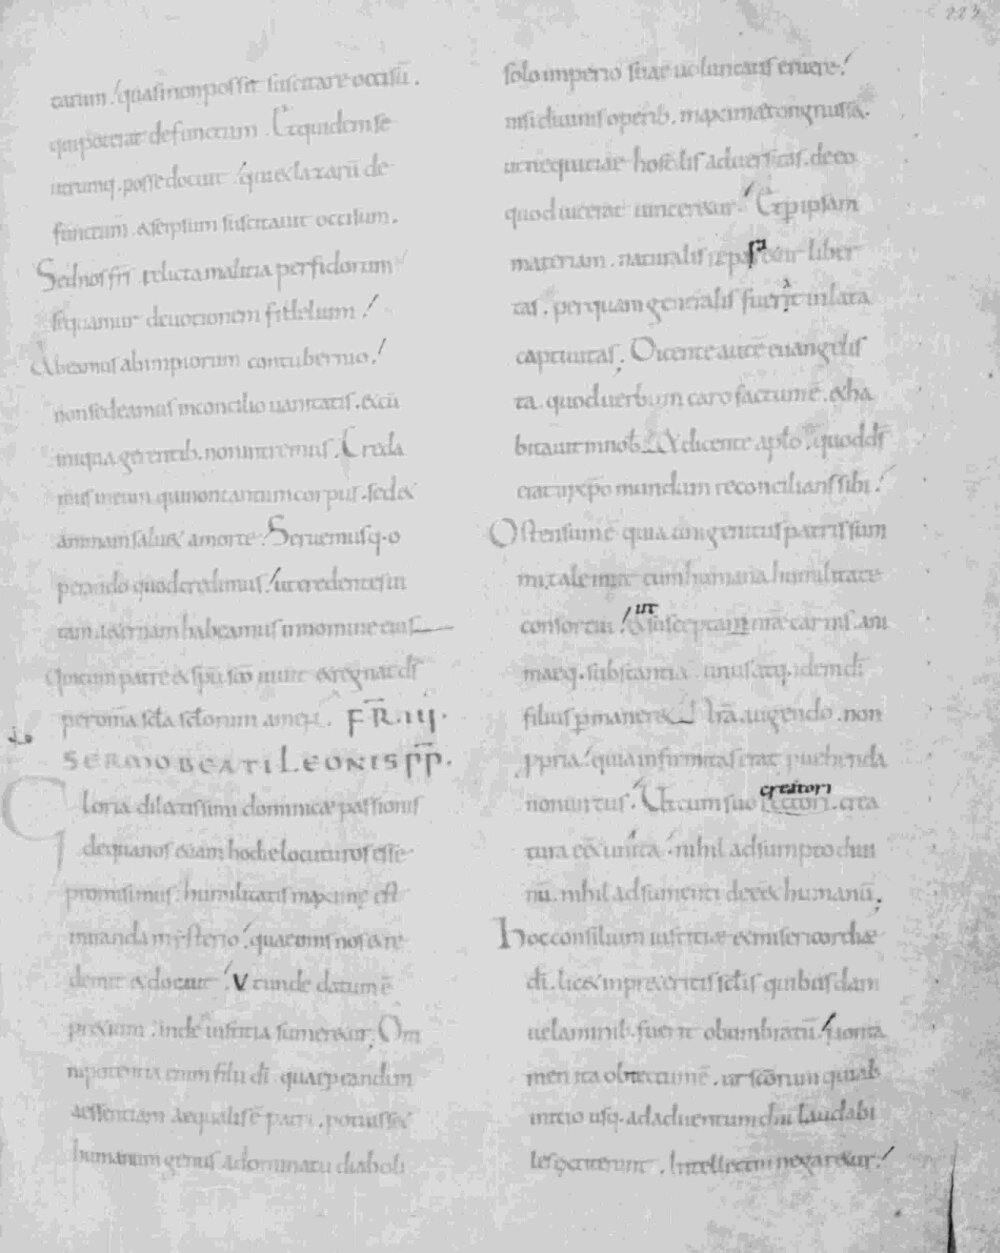 223
tarum. quasi non possit suscitare occisū.
qui poterat defunctum. Et quidem se
utrumq. posse docuit. qui & lazarū de
functum. & seipsum suscitauit occisum.
Sed nos frī relicta malitia perfidorum
sequamur deuotionem fidelium
Abeamus ab impiorum contubernio.
non sedeamus in concilio uanitatis. & cū
iniqua gerentib. non intremus. Creda
mus in eum qui non tantum corpus. sed &
animam saluat a morte. Seruemusq. o
perando quod credimus. ut credentes in
eum. & uitam habeamus in nomine eius
Qui cum patre & spū scō uiuit & regnat dī
per omīa scła scłorum amen. FR. III.
SERMO BEATI LEONIS PP.
Gloria dilectissimi dominicae passionis
de qua nos etiam hodie locuturos esse
promisimus. humilitatis maxime est
miranda mysterio. quae omnis nos & re
demit & docuit. Ut unde datum ē
pretium. inde iustitia sumeretur. Om
nipotentia enim filii dī. qua per eandem
aessentiam aequalis ē patri. potuisset
humanum genus a dominatu diaboli
solo imperio suae uoluntatis eruere.
nisi diuinis operib. maxima congruissā.
ut nequitiae hostilis aduersitas. de eo
quod uicerat uinceretur. Et p ipsam
materiam. naturalis repararetur liber
tas. per quam generalis fuerat inlata
captiuitas. Dicente autē euangelis
ta. quod uerbum caro factum ē. & ha
bitauit in nob. & dicente aplo. quod dī
erat in xpo mundum reconcilians sibi.
Ostensum ē quia unigenitus patris sum
mi. tale iniit cum humana humilitate
consortiū. ut suscepta nrā carnis. ani
maeq. substantia unus atq. idem dī
filius pmaneret. nrā augendo. non
ppria. quia infirmitas erat prouehenda
non uirtus. Ut cum suo creatori creatori. crea
tura eēt unita. nihil adsumpto diui
nū. nihil adsumenti deeet humanū,
Hoc consilium iustitiae & misericordiae
dī. licet in preteritis sclīs quibusdam
uelaminib. fuerit obumbratū. non ta
men ita obtectum ē. ut scōrum qui ab
initio usq. ad aduentum dnī laudabi
les extiterunt. Intellectui negaretur.